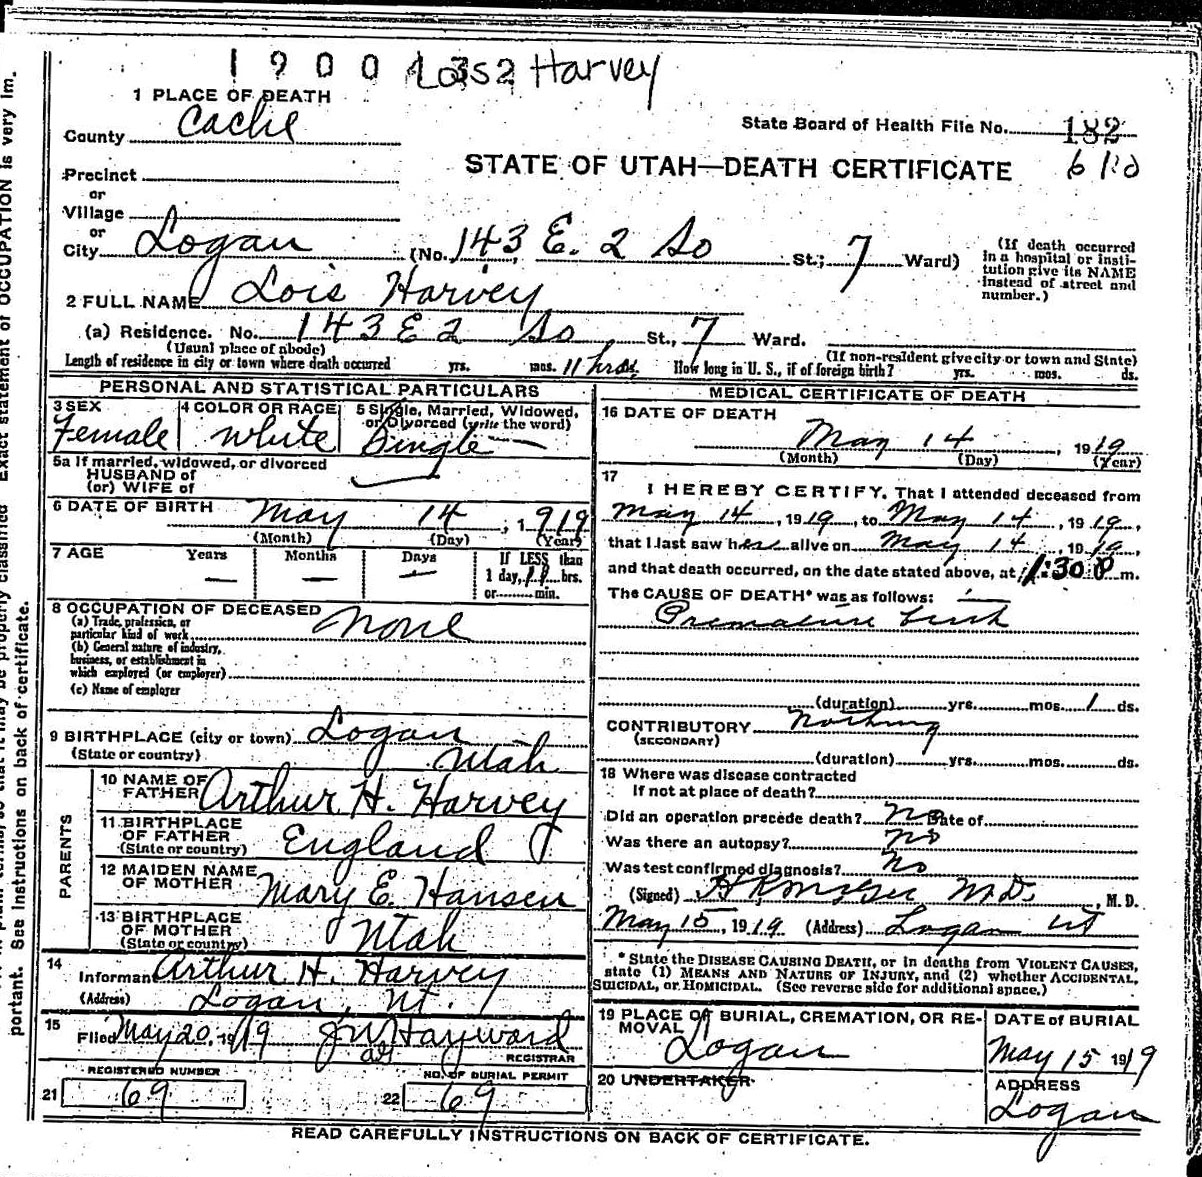 1900 Lois Harvey
1 PLACE OF DEATH
County Cache
State Board of Health File No. 182
STATE OF UTAH—DEATH CERTIFICATE
Precinct
or
Village
or
City Logan (No. 143 E. 2 So St.; 7 Ward)
(If death occurred in a hospital or institution give its NAME instead of street and number.)
2 FULL NAME Lois Harvey
(a) Residence. No. 143 E 2 So St., 7 Ward.
(Usual place of abode) (If non-resident give city or town and State)
Length of residence in city or town where death occurred yrs. mos. 11 hrs ds. How long in U. S., if of foreign birth? yrs. mos. ds.
PERSONAL AND STATISTICAL PARTICULARS
3 SEX Female
4 COLOR OR RACE White
5 Single, Married, Widowed, or Divorced (write the word) Single
5a If married, widowed, or divorced
HUSBAND of
(or) WIFE of
6 DATE OF BIRTH May 14, 1919
(Month) (Day) (Year)
7 AGE Years — Months — Days — If LESS than
1 day, 11 hrs.
or min.
8 OCCUPATION OF DECEASED None
(a) Trade, profession, or particular kind of work
(b) General nature of industry, business, or establishment in which employed (or employer)
(c) Name of employer
9 BIRTHPLACE (city or town) Logan
(State or country) Utah
PARENTS
10 NAME OF FATHER Arthur H. Harvey
11 BIRTHPLACE OF FATHER (State or country) England
12 MAIDEN NAME OF MOTHER Mary E. Hansen
13 BIRTHPLACE OF MOTHER (State or country) Utah
14 Informant Arthur H. Harvey
(Address) Logan, Ut.
15 Filed May 20, 1919 J W Hayward
REGISTRAR
REGISTERED NUMBER
21 69
NO. OF BURIAL PERMIT
22 69
MEDICAL CERTIFICATE OF DEATH
16 DATE OF DEATH
May 14, 1919
(Month) (Day) (Year)
17 I HEREBY CERTIFY, That I attended deceased from
May 14, 1919, to May 14, 1919,
that I last saw her alive on May 14, 1919,
and that death occurred, on the date stated above, at 1:30 P m.
The CAUSE OF DEATH* was as follows:
Premature birth
(duration) yrs. mos. 1 ds.
CONTRIBUTORY Nothing
(SECONDARY)
(duration) yrs. mos. ds.
18 Where was disease contracted
If not at place of death?
Did an operation precede death? No Date of
Was there an autopsy? No
Was test confirmed diagnosis? No
(Signed) M.D., M. D.
May 15, 1919 (Address) Logan Ut
* State the DISEASE CAUSING DEATH, or in deaths from VIOLENT CAUSES, state (1) MEANS AND NATURE OF INJURY, and (2) whether ACCIDENTAL, SUICIDAL, or HOMICIDAL. (See reverse side for additional space.)
19 PLACE OF BURIAL, CREMATION, OR REMOVAL Logan
DATE of BURIAL
May 15 1919
20 UNDERTAKER
ADDRESS
Logan
READ CAREFULLY INSTRUCTIONS ON BACK OF CERTIFICATE.
Exact statement of OCCUPATION is very im-
portant. See instructions on back of certificate.